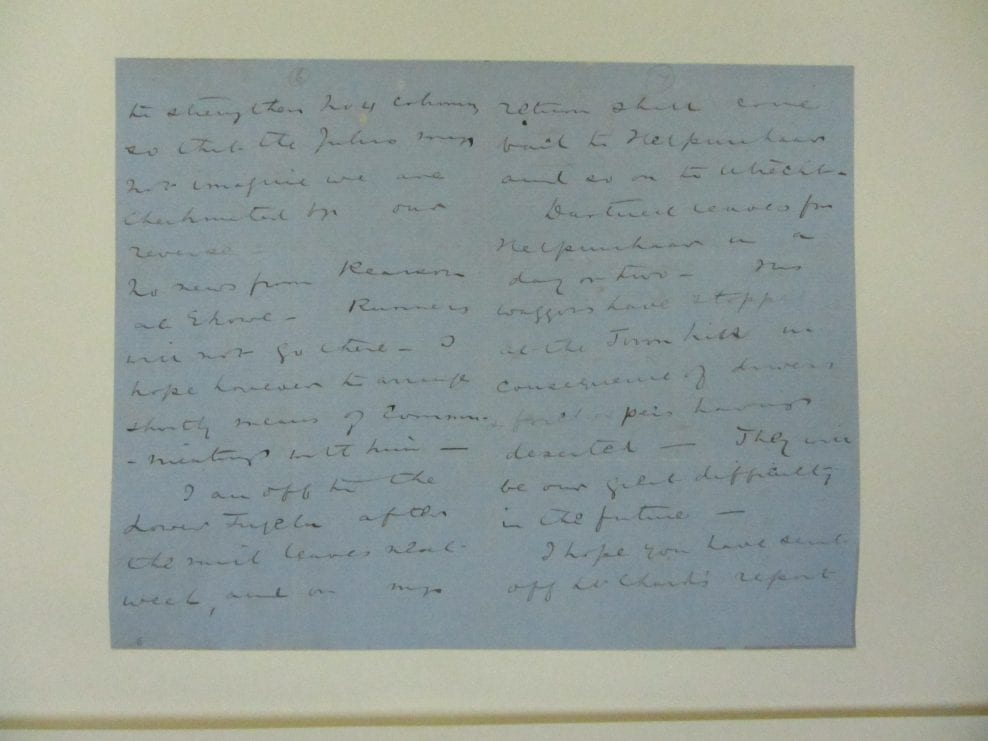 6
to strengthen No 4 column
so that the Zulus may
not imagine we are
Checkmated by our
reverse -
No news from Pearson
at Ekowe - Runners
will not go there - I
hope however to arrange
shortly means of Commu-
-nicating with him -
I am off to the
Lower Tugela after
the mail leaves next
week, and on my
7
return shall come
back to Helpmakaar
and so on to Utrecht -
Dartnell leaves for
Helpmakaar in a
day or two - His
waggons have stopped
at the Town hill in
consequence of drivers
& having
deserted - They will
be our great difficulty
in the future -
I hope you have sent
off Lt Chard's report
6